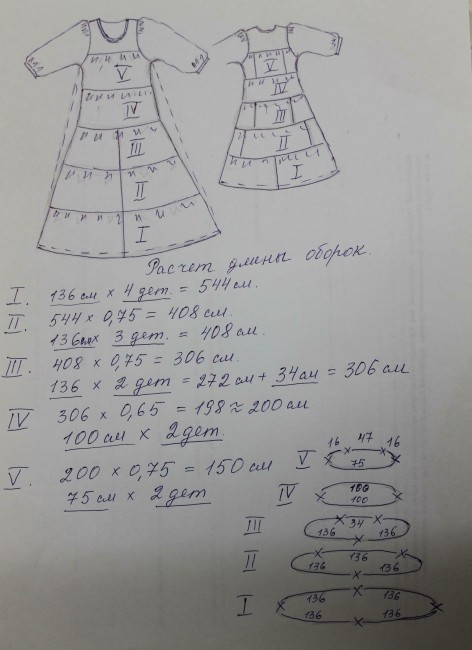 V
IV
III
II
I
V
IV
III
II
I
Расчет длины оборок.
I. 136 см x 4 дет. = 544 см.
II. 544 x 0,75 = 408 см.
136см x 3 дет. = 408 см.
III. 408 x 0,75 = 306 см.
136 x 2 дет = 272 см + 34 см = 306 см
IV 306 x 0,65 = 198 ≈ 200 см
100 см x 2 дет.
V. 200 x 0,75 = 150 см
75 см x 2 дет
V 16 47 16
75
IV 100
100
III 34
136 136
II 136
136 136
I 136 136
136 136